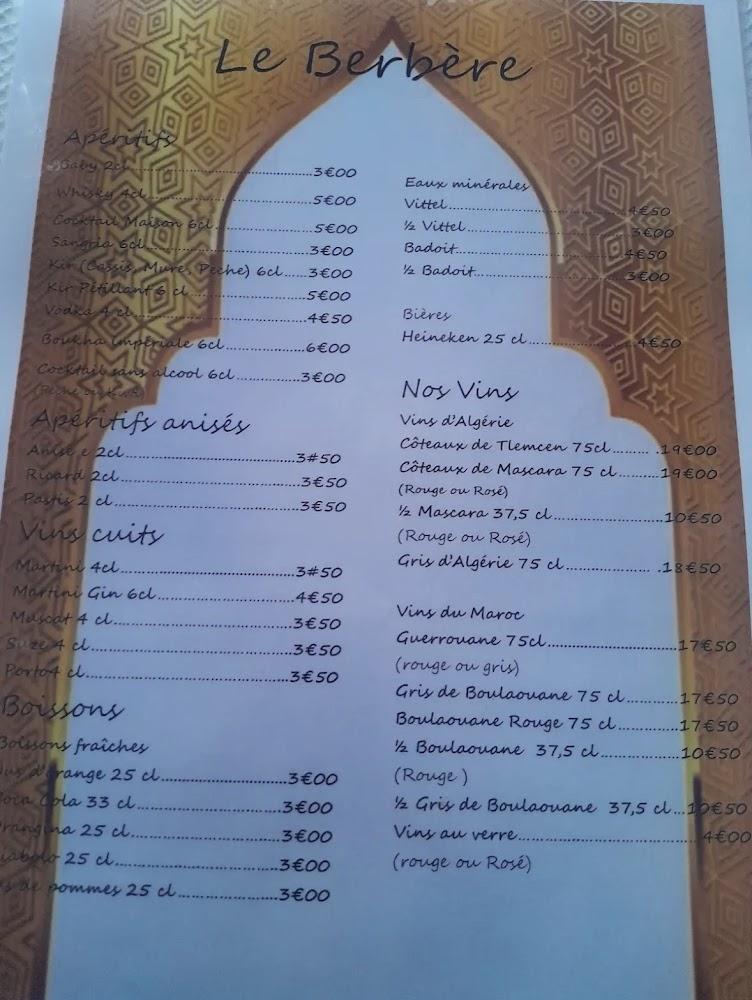 Le Berbère
Apéritifs
Baby 2cl..............................3€00
Whisky 4cl..............................5€00
Cocktail Maison 6cl....................5€00
Sangria 6cl..............................3€00
Kir (Cassis, Mure, Peche) 6cl......3€00
Kir Pétillant 6 cl........................5€00
Vodka 4 cl..............................4€50
Boukha impériale 6cl..................6€00
Cocktail sans alcool 6cl...............3€00
Apéritifs anisés
2cl..............................3#50
Ricard 2cl..............................3€50
Pastis 2 cl..............................3€50
Vins cuits
Martini 4cl..............................3#50
Martini Gin 6cl........................4€50
Muscat 4 cl..............................3€50
Suze 4 cl..............................3€50
Porto4 cl..............................3€50
Boissons
Boissons fraîches
us d'orange 25 cl........................3€00
oca Cola 33 cl........................3€00
rangina 25 cl........................3€00
iabolo 25 cl........................3€00
s de pommes 25 cl..................3€00
Eaux minérales
Vittel..............................4€50
½ Vittel..............................3€00
Badoit..............................4€50
½ Badoit..............................3€00
Bières
Heineken 25 cl..................4€50
Nos Vins
Vins d'Algérie
Côteaux de Tlemcen 75cl......... .19€00
Côteaux de Mascara 75 cl..........19€00
(Rouge ou Rosé)
½ Mascara 37,5 cl..................10€50
(Rouge ou Rosé)
Gris d'Algérie 75 cl............... .18€50
Vins du Maroc
Guerrouane 75cl........................17€50
(rouge ou gris)
Gris de Boulaouane 75 cl............17€50
Boulaouane Rouge 75 cl............17€50
½ Boulaouane 37,5 cl...............10€50
(Rouge )
½ Gris de Boulaouane 37,5 cl...10€50
Vins au verre..............................4€00
(rouge ou Rosé)